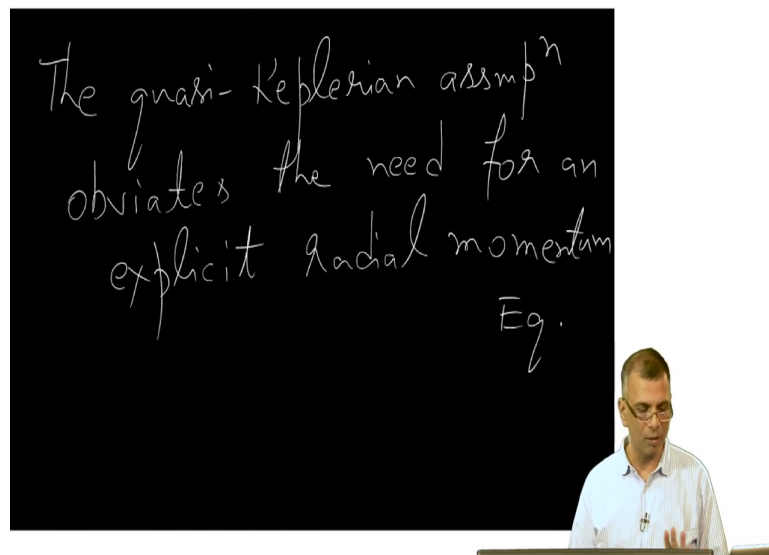 The quasi-Keplerian assmpⁿ
obviates the need for an
explicit radial momentum
Eq.